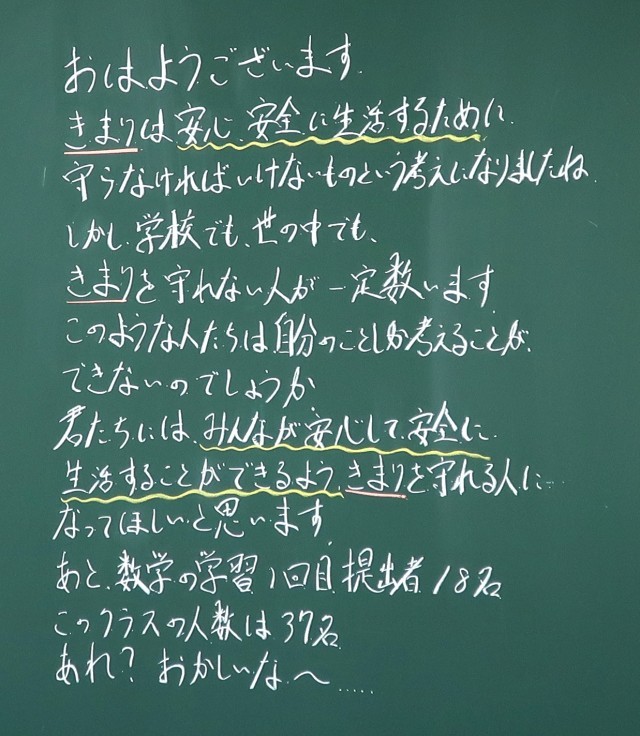 おはようございます.
きまりは安心、安全に生活するために、
守らなければいけないものという考えになりましたね
しかし、学校でも、世の中でも、
きまりを守れない人が一定数います
このような人たちは自分のことしか考えることが、
できないのでしょうか
君たちには、みんなが安心して、安全に
生活することができるよう、きまりを守れる人に…
なってほしいと思います
あと、数学の学習1回目提出者18名
このクラスの人数は37名
あれ?おかしいな〜.....